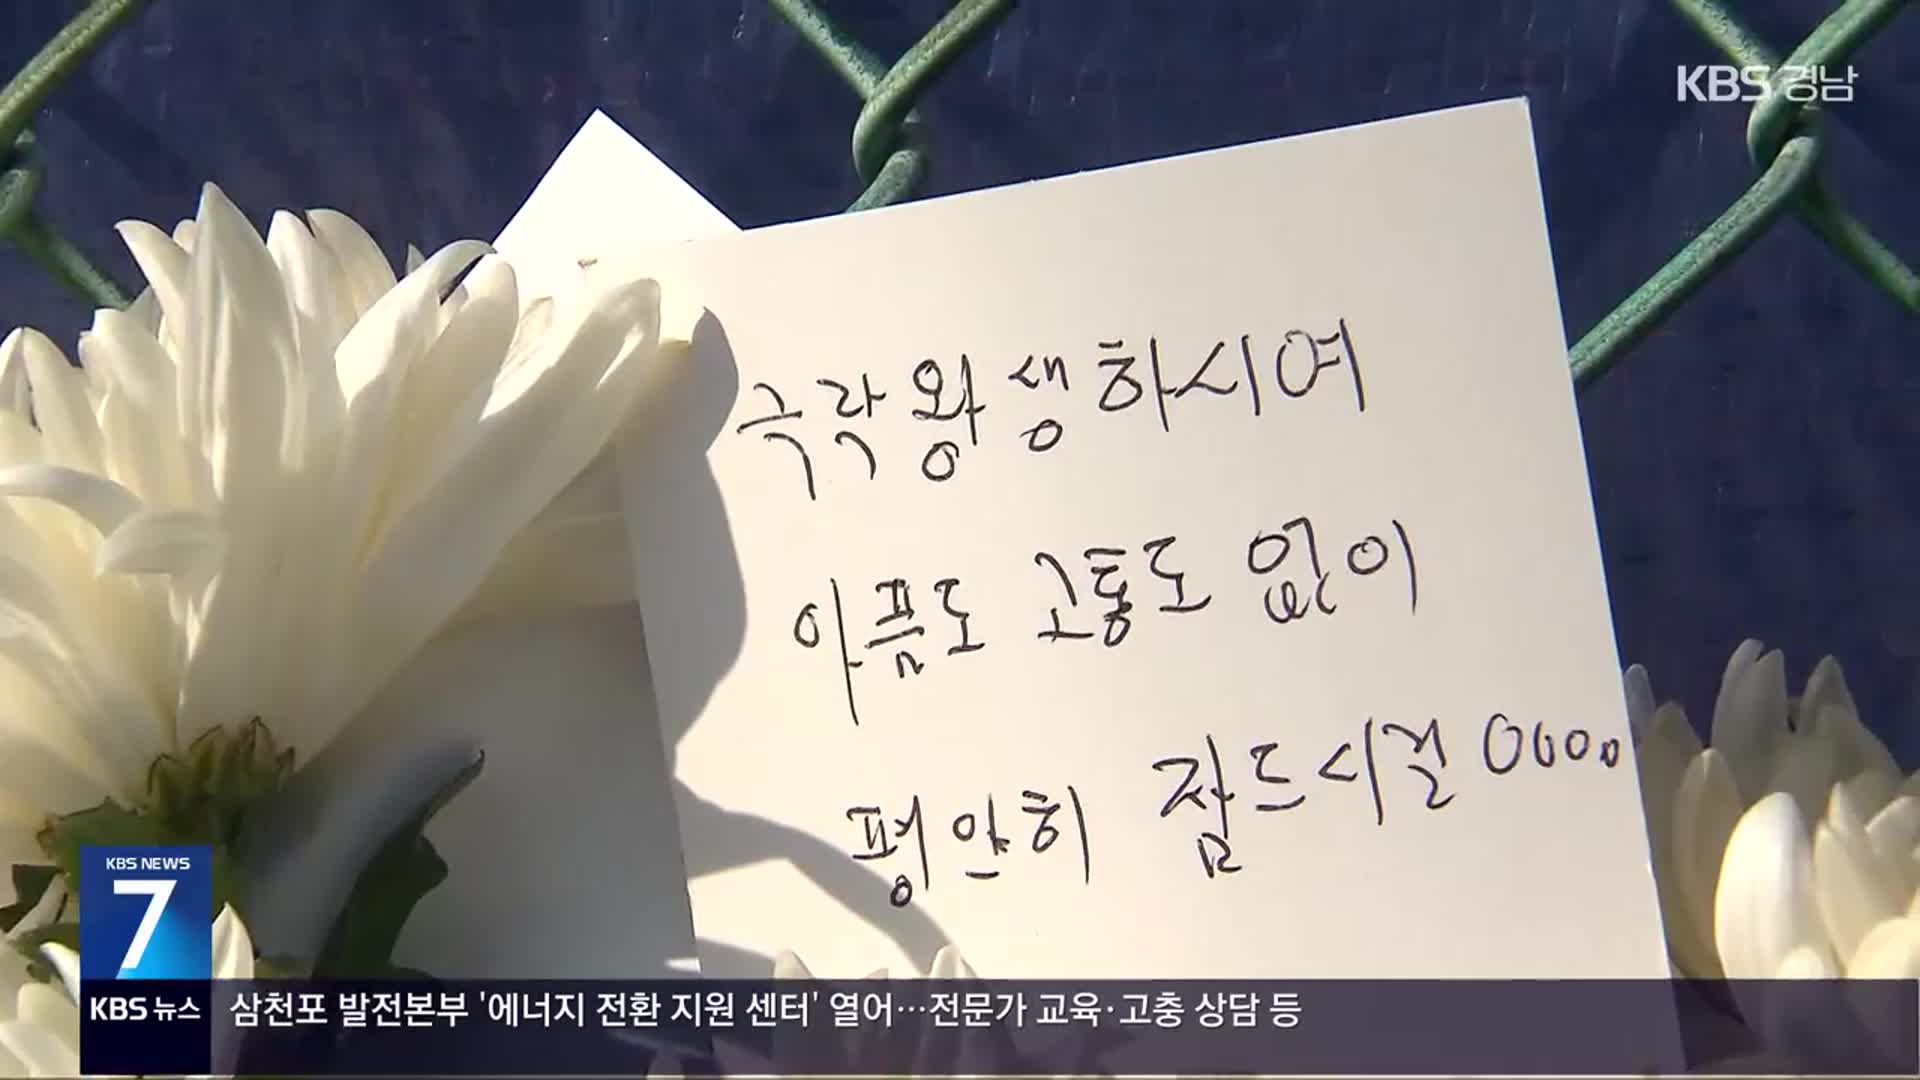 KBS 경남
극락왕생하시여
아픔도 고통도 없이
평안히 잠드시길
KBS NEWS
7
KBS 뉴스
삼천포 발전본부 '에너지 전환 지원 센터' 열어…전문가 교육·고충 상담 등